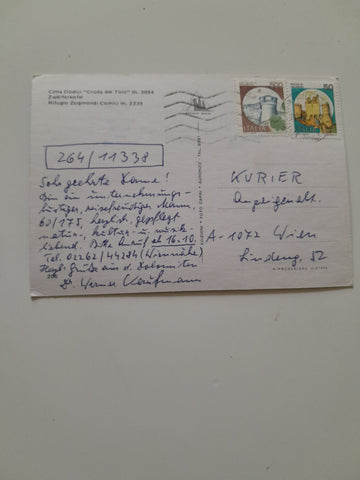 Cima Dodici "Croda dei Toni" m. 3094
Zwölferkofel
Rifugio Zsigmondi Comici m. 2235
264/11338
Sehr geehrte Dame!
Bin ein unternehmungs-
lustiger, reisefreudiger Mann,
60/175, herzl., gepflegt
natur-, kultur- u. musik-
liebend. Bitte Anruf ab 16.10.
Tel. 02262/44284 (Wiennähe)
Herzl. Grüße aus d. Dolomiten
Dr. Werner Kaufmann
500
ITALIA
150
ITALIA
KURIER
Anzeigenabt.
A-1072 Wien
Lindeng. 52
RIPRODUZIONE VIETATA